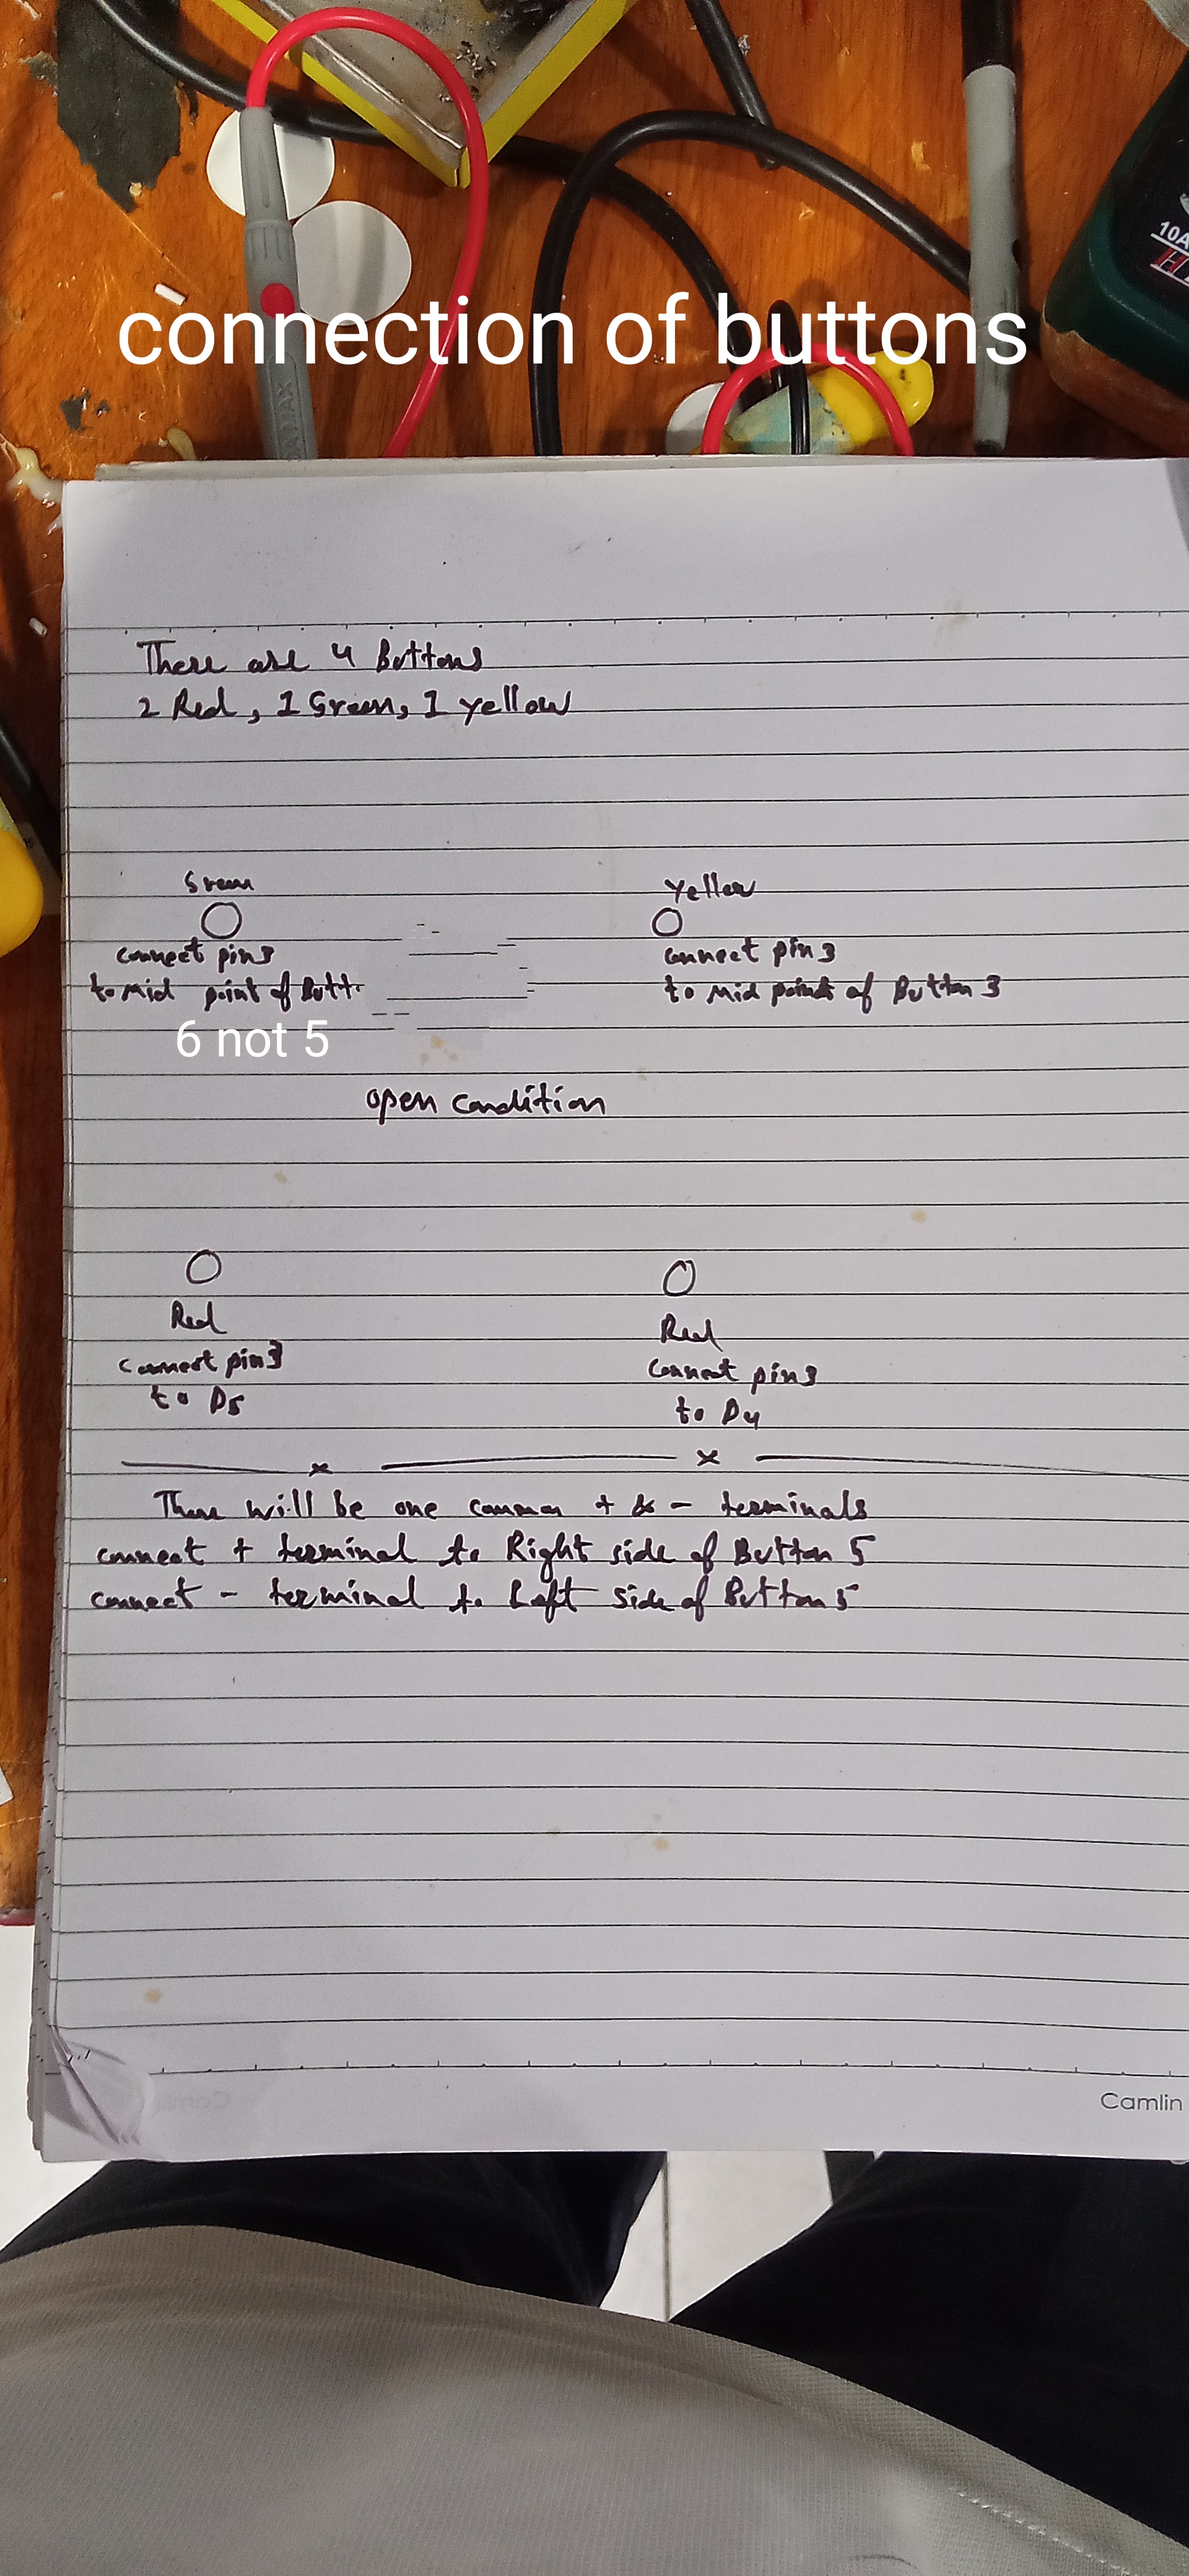 10A
connection of buttons
There are 4 Buttons
2 Red, 1 Green, 1 yellow
Green
connect pin 3
to Mid point of Butt
6 not 5
Yellow
connect pin 3
to Mid point of Button 3
open condition
Red
connect pin 3
to D5
Red
connect pin 3
to D4
x x
There will be one common + & - terminals
connect + terminal to Right side of Button 5
connect - terminal to Left side of Button 5
Camlin